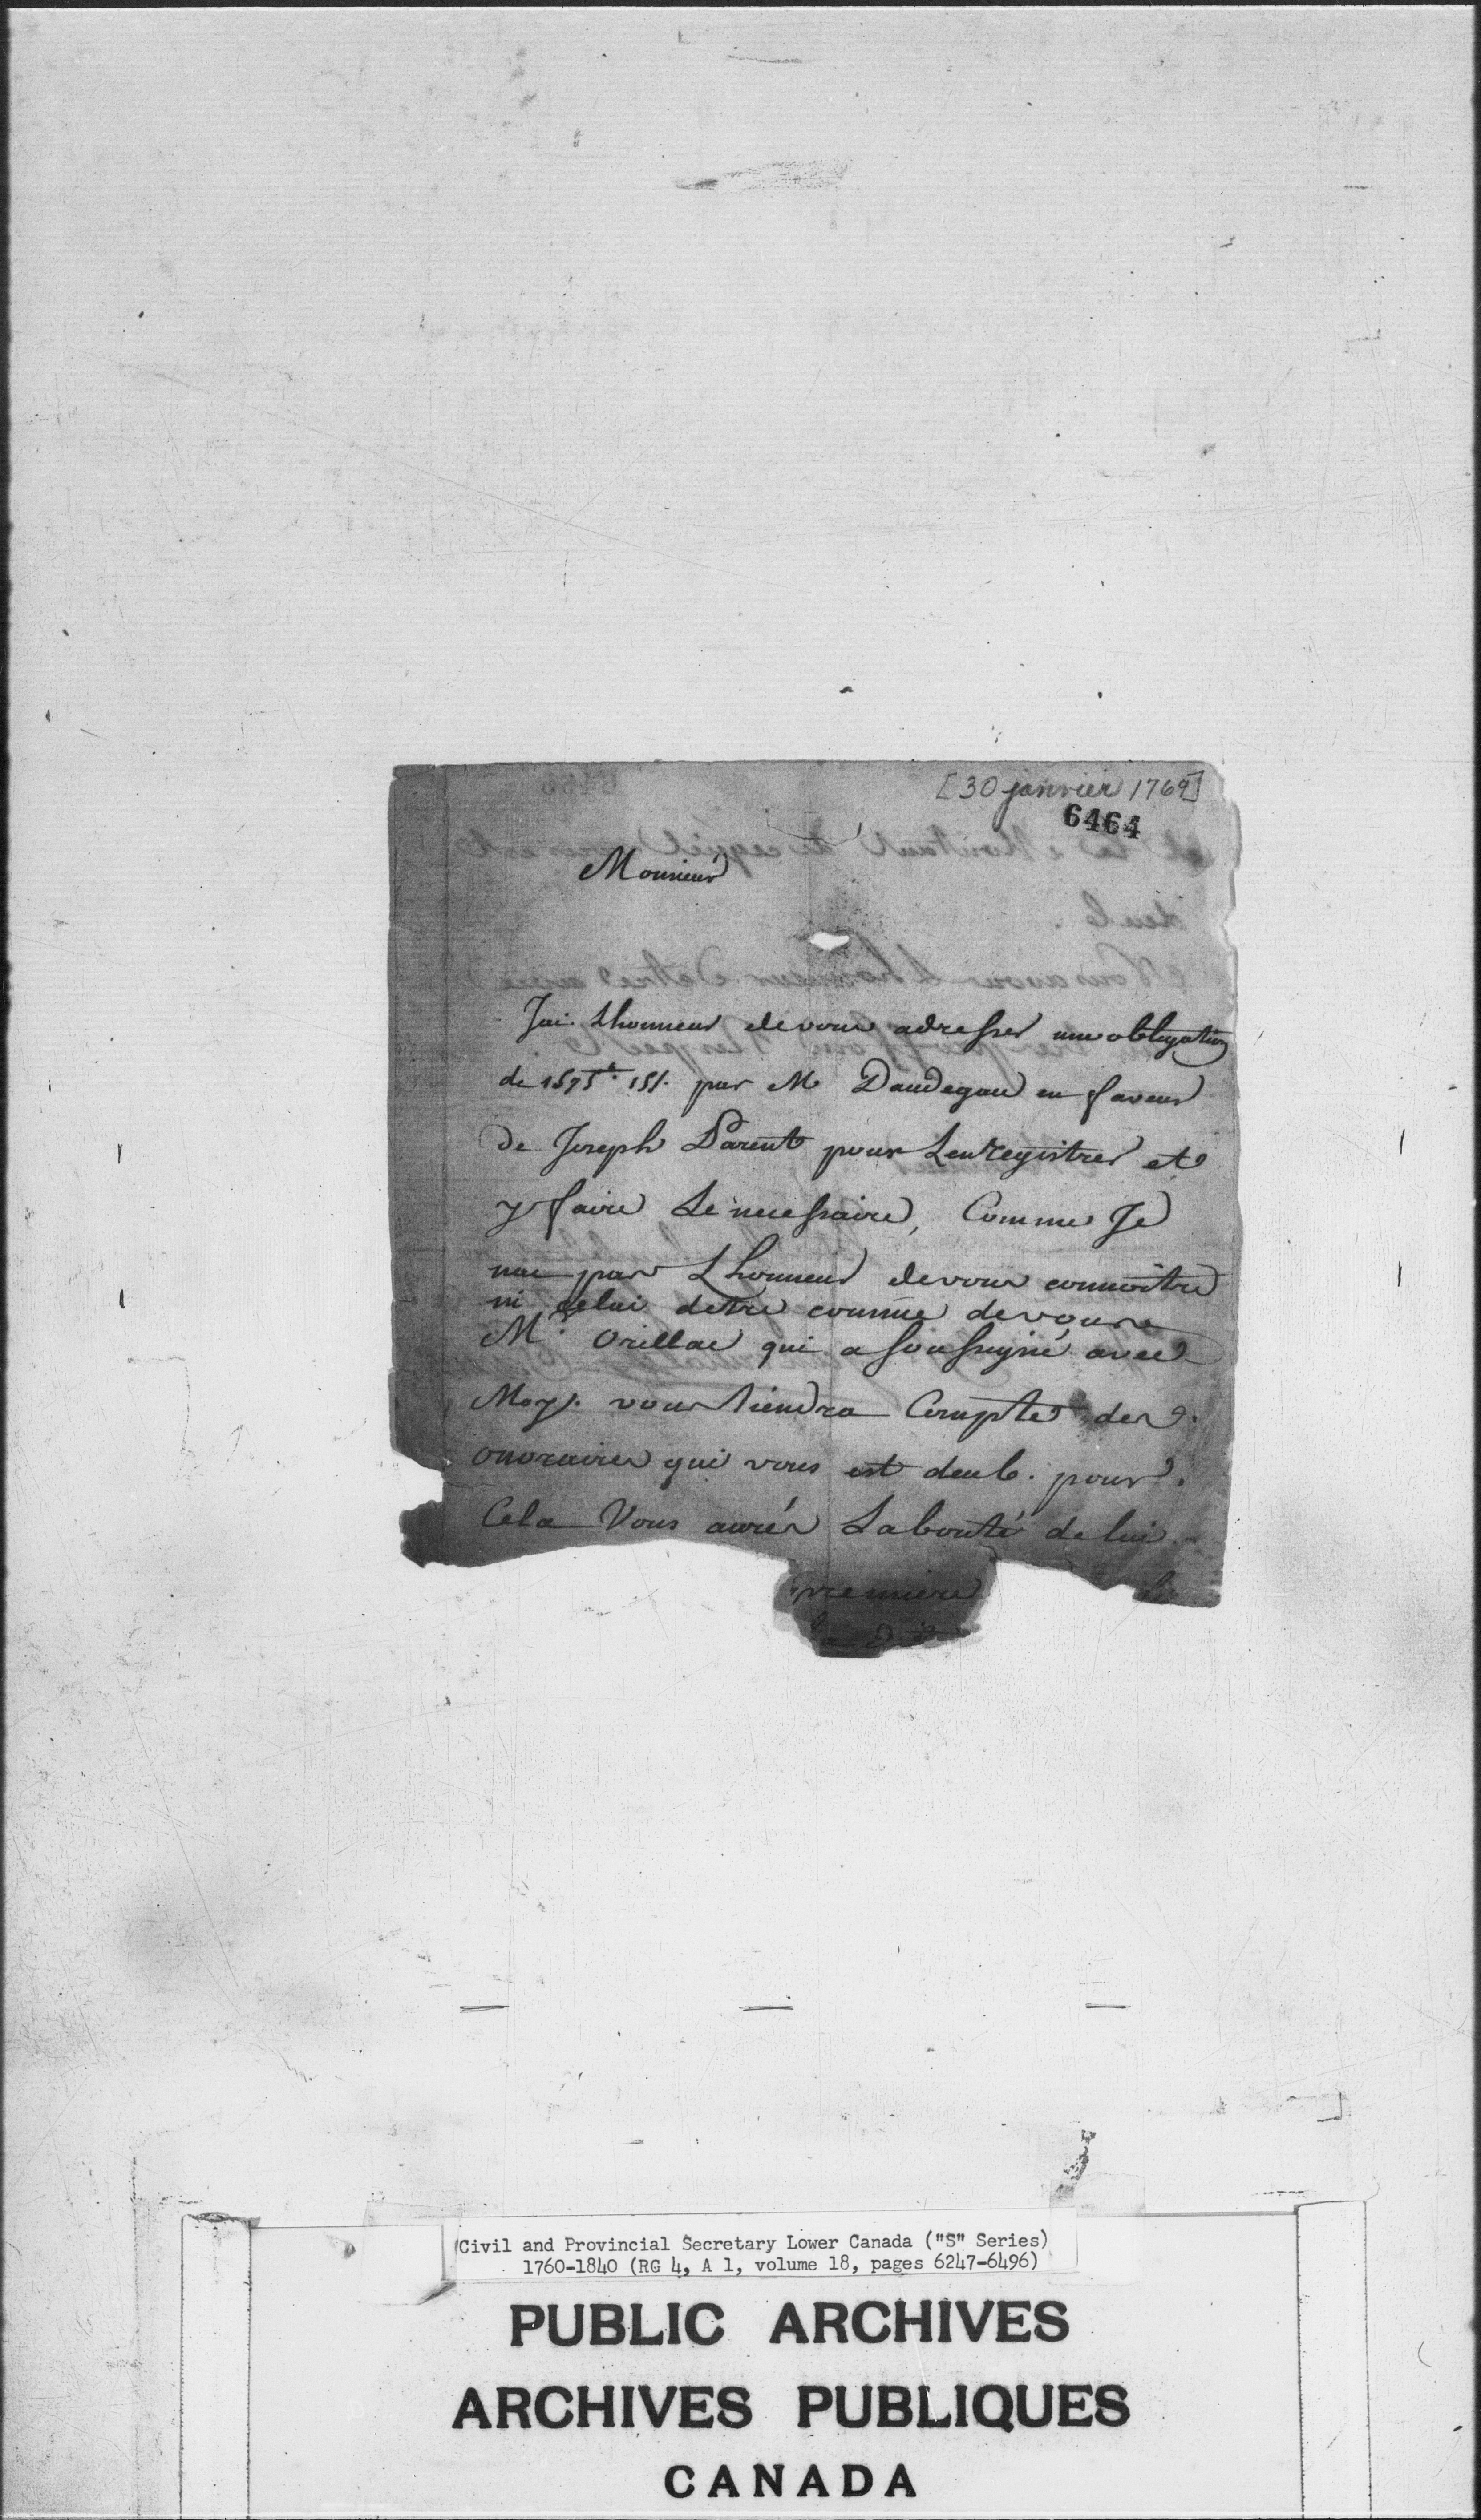 [30 janvier 1769]
6464
Monsieur
Jai Lhonneur devous adresser une obligation
de 1575ᵗᵗ 15ˢ. par Mr Daudegau en faveur
De Joseph Parent pour Lenregistrer et
y faire Le necessaire, Comme Je
nai pas Lhonneur devous connoitre
ni celui detre connüe devous
Mr. Orillac qui a Soussigné avec
Moy. vous tiendra Compte des
onoraires qui vous est deub. pour
Cela Vous aurés Labonté de lui
premiere
la dit
Civil and Provincial Secretary Lower Canada ("S" Series)
1760-1840 (RG 4, A 1, volume 18, pages 6247-6496)
PUBLIC ARCHIVES
ARCHIVES PUBLIQUES
CANADA